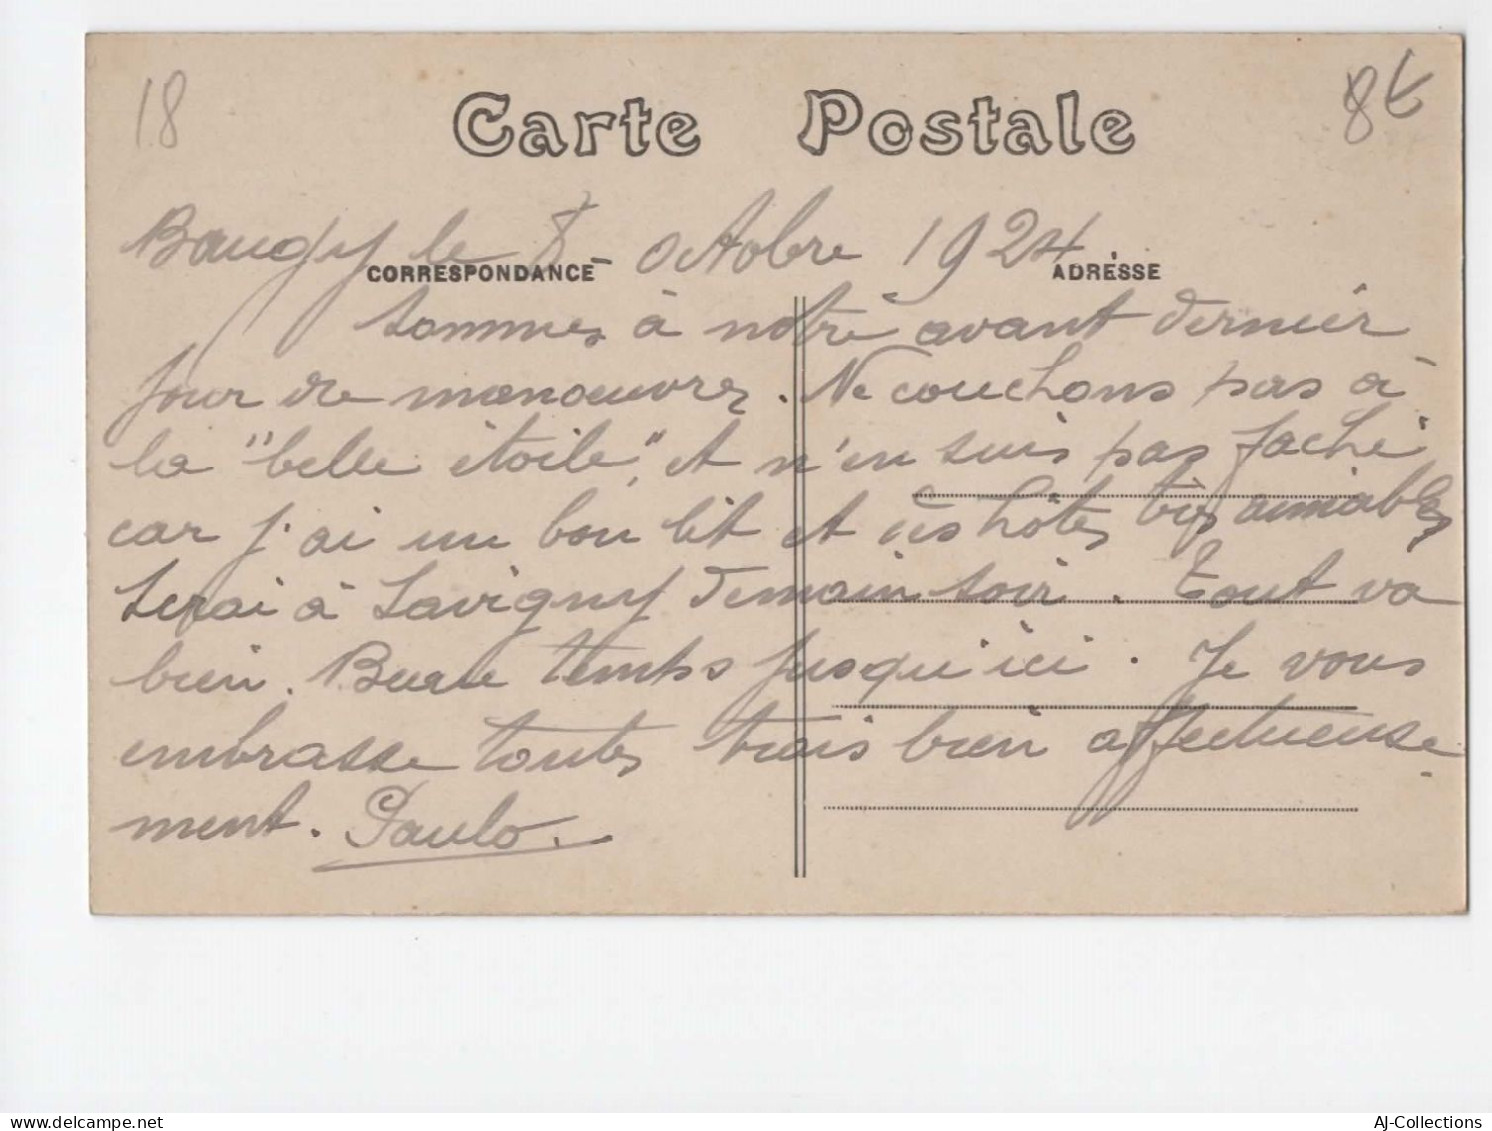 18
8€
Carte Postale
Baugy le 8 octobre 1924
CORRESPONDANCE
ADRESSE
Sommes à notre avant dernier
jour de manoeuvres. Ne couchons pas à
la "belle étoile", et n'en suis pas faché
car j'ai un bon lit et des hôtes très aimables
Serai à Savigny demain soir. Tout va
bien. Beau temps jusqu'ici. Je vous
embrasse toutes trois bien affectueuse
ment. Paulo.
AJ-Collections